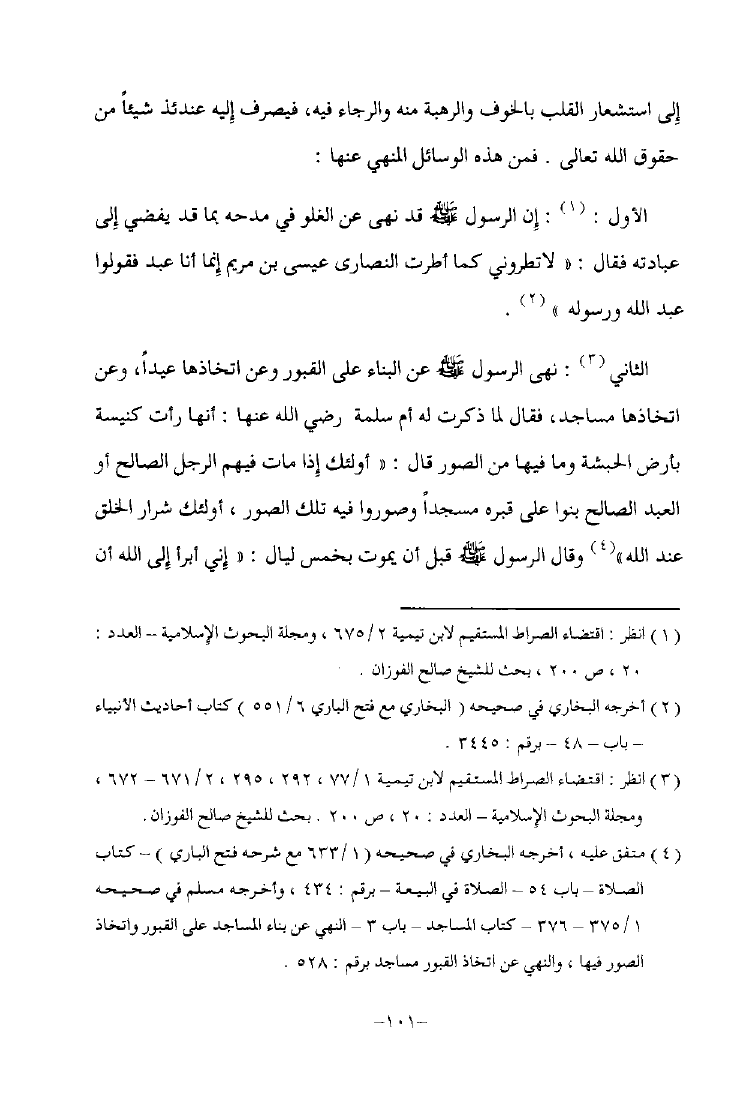 إلى استشعار القلب بالخوف والرهبة منه والرجاء فيه، فيصرف إليه عندئذ شيئاً من
حقوق الله تعالى . فمن هذه الوسائل المنهي عنها :
الأول : (١) : إن الرسول ﷺ قد نهى عن الغلو في مدحه بما قد يفضي إلى
عبادته فقال : « لاتطروني كما أطرت النصارى عيسى بن مريم إنما أنا عبد فقولوا
عبد الله ورسوله » (٢) .
الثاني (٣) : نهى الرسول ﷺ عن البناء على القبور وعن اتخاذها عيداً، وعن
اتخاذها مساجد، فقال لما ذكرت له أم سلمة رضي الله عنها : أنها رأت كنيسة
بأرض الحبشة وما فيها من الصور قال : « أولئك إذا مات فيهم الرجل الصالح أو
العبد الصالح بنوا على قبره مسجداً وصوروا فيه تلك الصور ، أولئك شرار الخلق
عند الله»(٤) وقال الرسول ﷺ قبل أن يموت بخمس ليال : « إني أبرأ إلى الله أن
(١) انظر : اقتضاء الصراط المستقيم لابن تيمية ٦٧٥/٢ ، ومجلة البحوث الإسلامية – العدد :
٢٠ ، ص ٢٠٠ ، بحث للشيخ صالح الفوزان .
(٢) أخرجه البخاري في صحيحه ( البخاري مع فتح الباري ٥٥١/٦ ) كتاب أحاديث الأنبياء
– باب – ٤٨ – برقم : ٣٤٤٥ .
(٣) انظر : اقتضاء الصراط المستقيم لابن تيمية ٧٧/١ ، ٢٩٢ ، ٢٩٥ ، ٦٧١/٢ – ٦٧٢ ،
ومجلة البحوث الإسلامية – العدد : ٢٠ ، ص ٢٠٠ . بحث للشيخ صالح الفوزان.
(٤) متفق عليه ، أخرجه البخاري في صحيحه (٦٣٣/١ مع شرحه فتح الباري ) – كتاب
الصلاة – باب ٥٤ – الصلاة في البيعة – برقم : ٤٣٤ ، وأخرجه مسلم في صحيحه
٣٧٥/١ – ٣٧٦ – كتاب المساجد – باب ٣ – النهي عن بناء المساجد على القبور واتخاذ
الصور فيها ، والنهي عن اتخاذ القبور مساجد برقم : ٥٢٨ .
–١٠١–